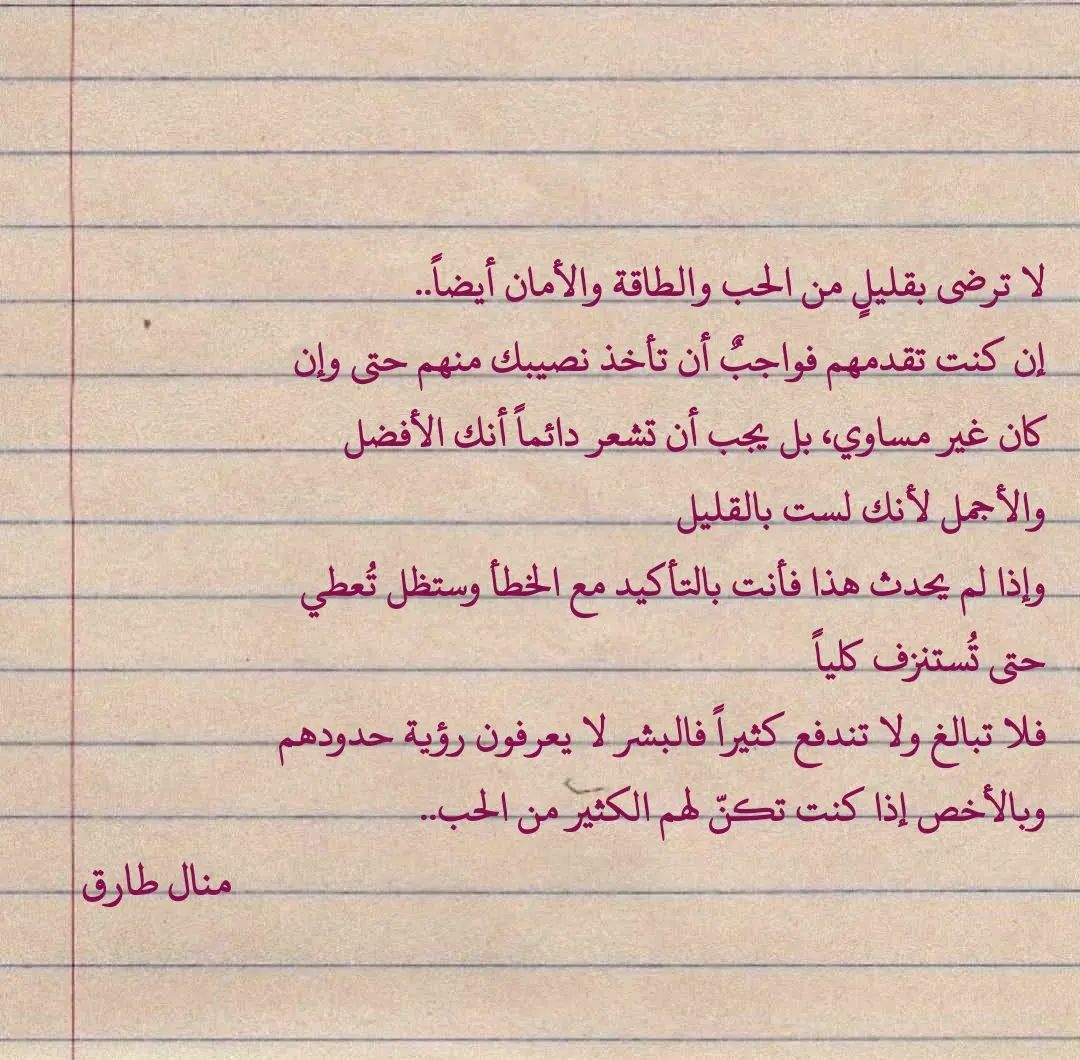 لا ترضى بقليلٍ من الحب والطاقة والأمان أيضاً..
إن كنت تقدمهم فواجبٌ أن تأخذ نصيبك منهم حتى وإن
كان غير مساوي، بل يجب أن تشعر دائماً أنك الأفضل
والأجمل لأنك لست بالقليل
وإذا لم يحدث هذا فأنت بالتأكيد مع الخطأ وستظل تُعطي
حتى تُستنزف كلياً
فلا تبالغ ولا تندفع كثيراً فالبشر لا يعرفون رؤية حدودهم
وبالأخص إذا كنت تكنّ لهم الكثير من الحب..
منال طارق